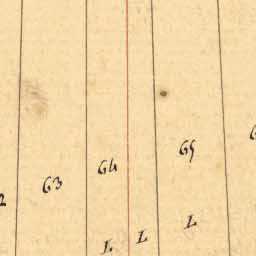 2 63 64 65 6
L L L